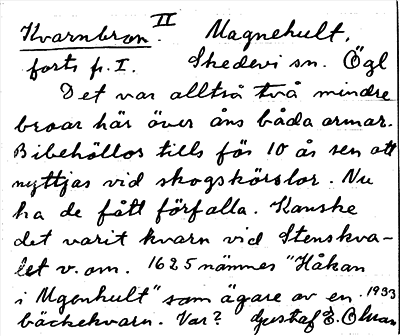 Kvarnbron. II Magnehult,
forts fr. I. Skedevi sn. Ögl
Det var alltså två mindre
broar här över åns båda armar.
Bibehöllos tills för 10 år sen att
nyttjas vid skogskörslor. Nu
ha de fått förfalla. Kanske
det varit kvarn vid Stenskva-
let v. om. 1625 nämnes "Håkan
i Mgenhult" som ägare av en 1933
bäckekvarn. Var? Gustaf E. Ohman